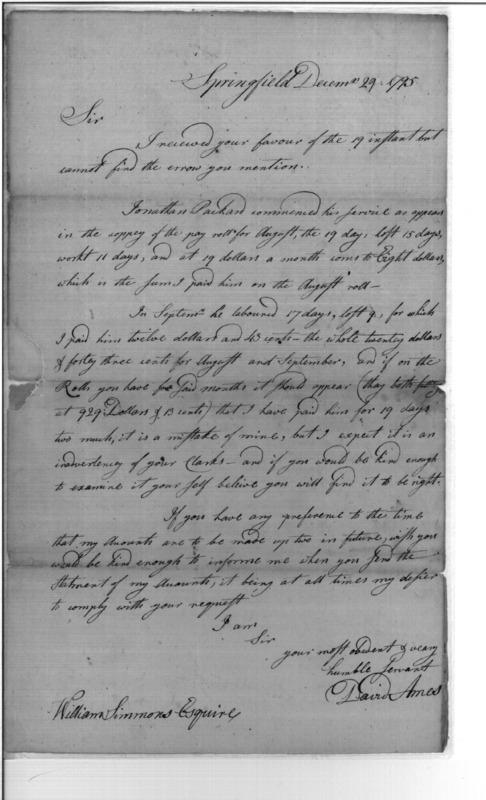 Springfield Decemr 29. 1795
Sir
I recieved your favour of the 19 instant but
cannot find the errow you mention.
Jonathan Packard commenced his service as appears
in the coppey of the pay roll for August, the 19 day, lost 15 days,
workt 11 days, and at 19 dollars a month coms to Eight dollars,
which is the sum I paid him on the August roll—
In Septemr he laboured 17 days, lost 9, for which
I paid him twelve dollars and 43 cents— the whole twenty dollars
& forty three cents for August and September, and if on the
Rolls you have for said months it should appear (they both
at 929 Dollars & 13 cents) that I have paid him for 19 days
two much, it is a mistake of mine, but I expect it is an
inadvertency of your Clarks— and if you would be kind enough
to examine it your self believe you will find it to be right.
If you have any preference to the time
that my Accounts are to be made up two in future, wish you
would be kind enough to informe me when you send the
Statement of my Accounts, it being at all times my desier
to comply with your request
I am
Sir
your most obedent & veary
humble Servant
David Ames
William Simmons Esquire